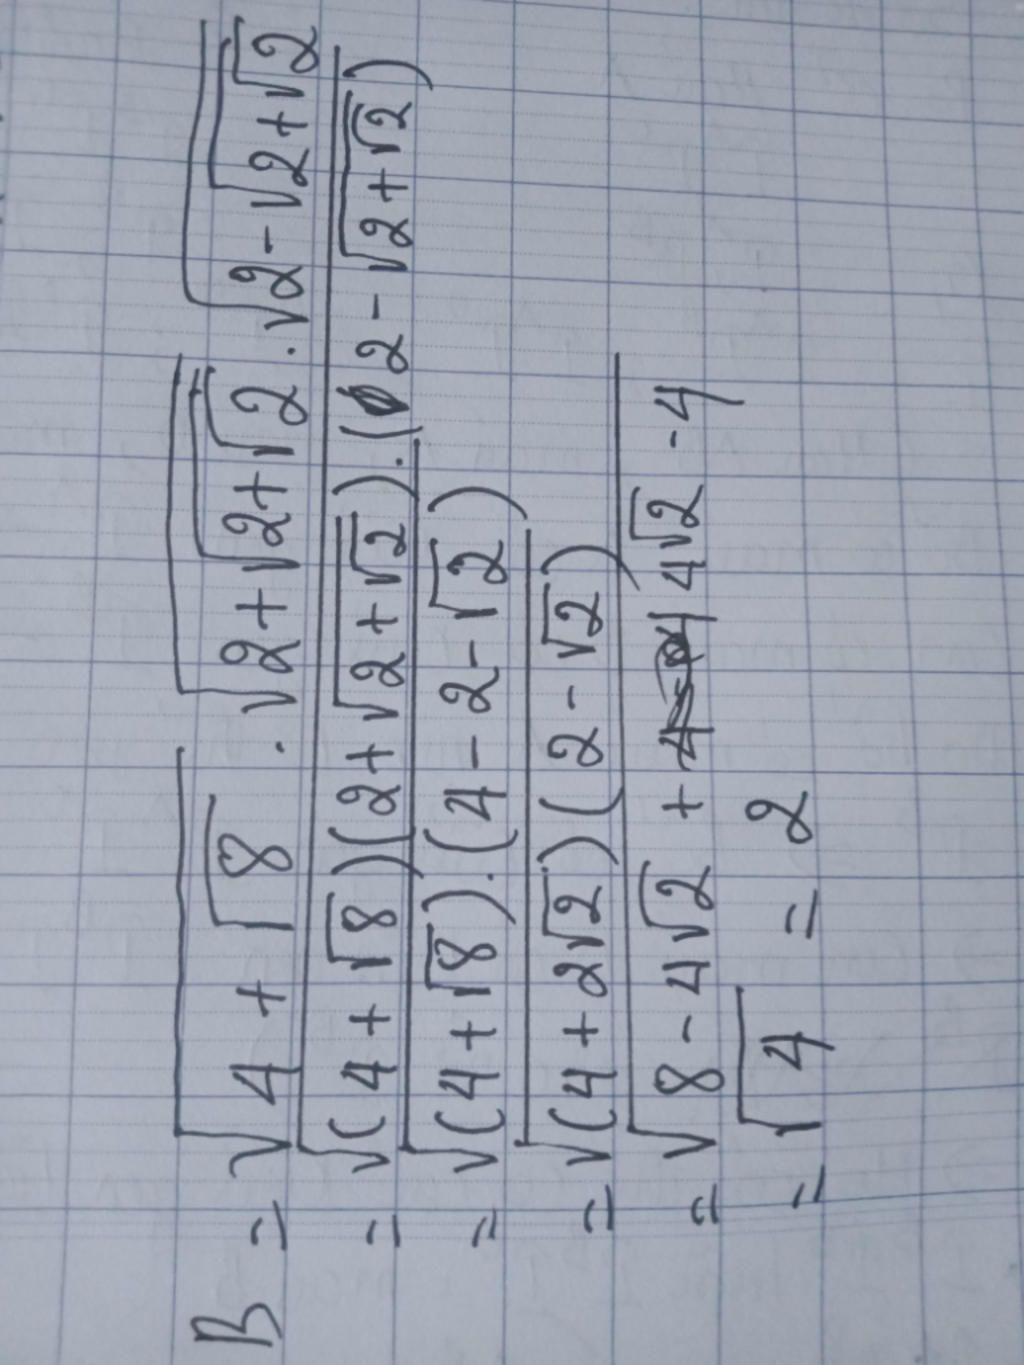 B = √(4 + √8) . √(2 + √(2 + √2)) . √(2 - √(2 + √2))
= √((4 + √8)(2 + √(2 + √2)) . (2 - √(2 + √2)))
= √((4 + √8) . (4 - 2 - √2))
= √((4 + 2√2)(2 - √2))
= √(8 - 4√2 + 4√2 - 4)
= √4 = 2